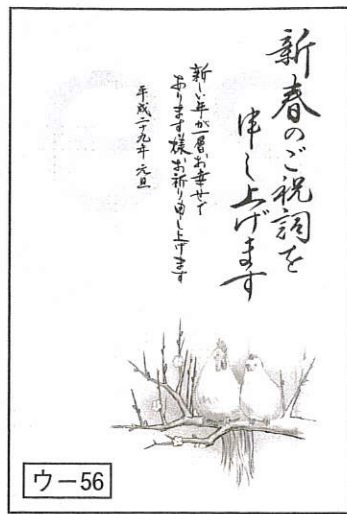 新春のご祝詞を
申し上げます
新しい年が一層お幸せで
あります様お祈り申し上げます
平成二十九年 元旦
ウー56